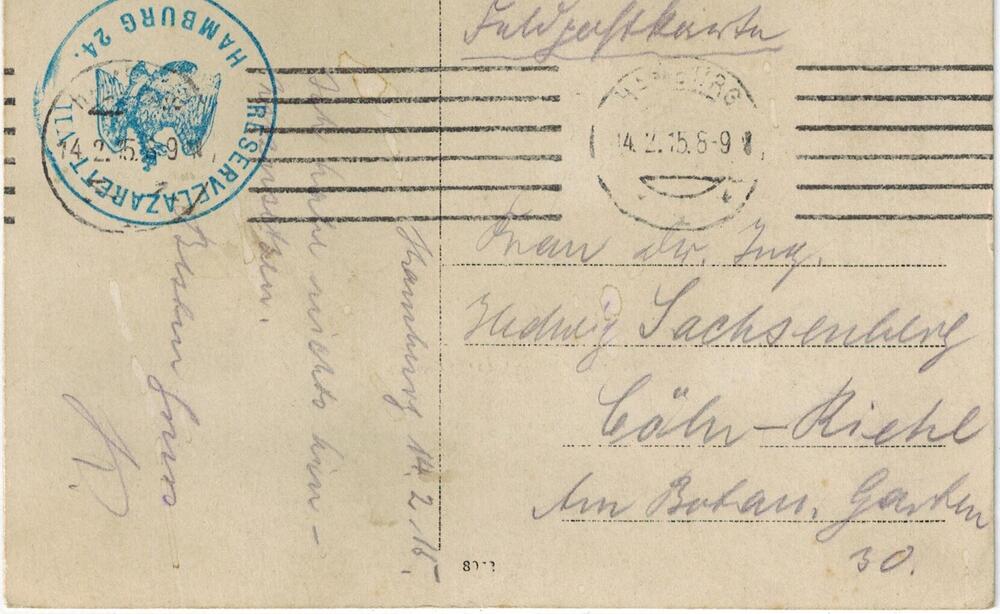 Feldpostkarte
RESERVELAZARETT VI.
HAMBURG 24.
HAMBURG
14.2.15.8-9 V.
HAMBURG
14.2.15.8-9 V.
Hamburg 14.2.15.
Ich habe nichts hin-
Besten Gruss
K.
Frau Dr. Ing.
Hedwig Sachsenberg
Cöln-Riehl
Am Botan. Garten
30.